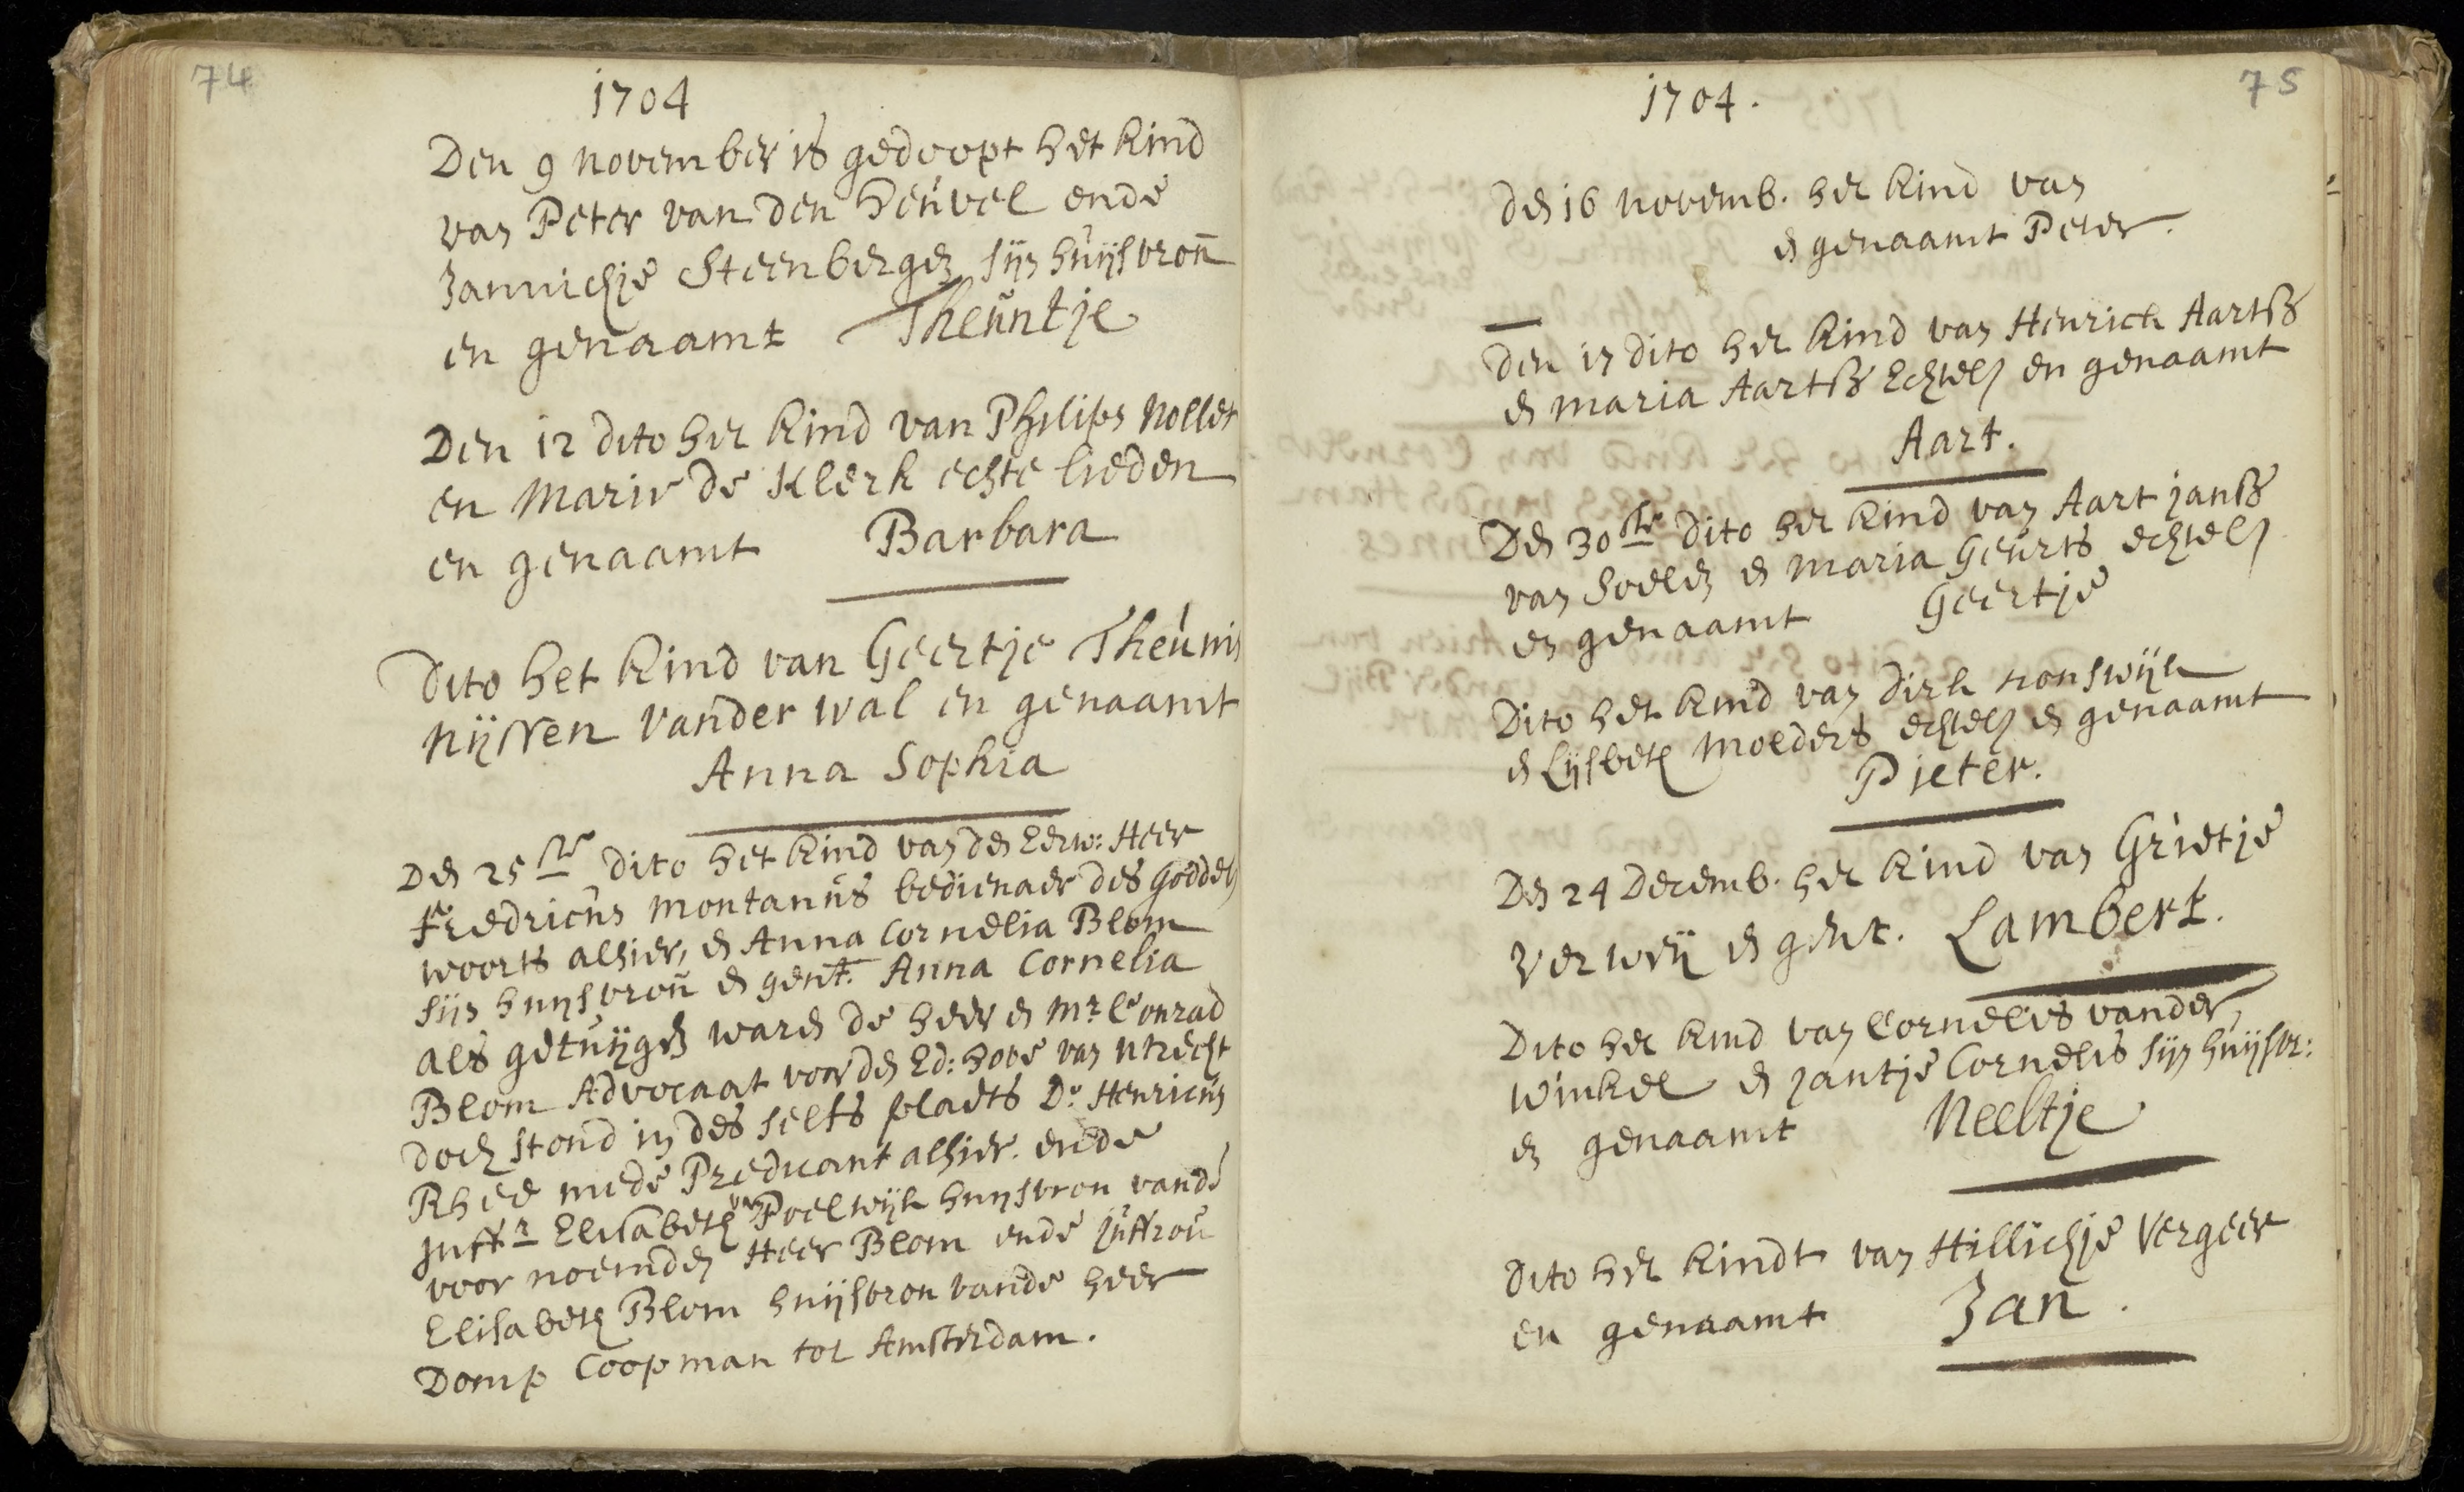 74
1704
Den 9 November is gedoopt het kind
van Peter van den Heuvel ende
Jannichje Steenbergen sijn huijsvrou
en genaamt Theuntje
Den 12 dito het kind van Philips Nollet
en Marie de Klerk echte lieden
en genaamt Barbara
Dito het kind van Geertje Theunis
Nijssen vander Wal en genaamt
Anna Sophia
Den 25ste dito het kind van den Eerw: Heer
Fredricus Montanus bedienaer des Goddel
woorts alhier, en Anna Cornelia Blom
sijn huijsvrou en gent. Anna Cornelia
als getuijgen waren de heer en Mr. Conrad
Blom Advocaat voor den Ed: Hove van Utrecht
doch stond in des selfs plaets Do. Henricus
Rhee mede Predicant alhier. ende
Juffr Elisabeth van Poelwijk huijsvrou vande
voor noemden Heer Blom ende juffrou
Elisabeth Blom huijsvrou vande heer
Domp Coopman tot Amsterdam.
75
1704.
den 16 Novemb. het kind van
en genaamt Peter.
den 17 dito het kind van Henrick Aartss
en Maria Aartss Echtel en genaamt
Aart.
Den 30ste dito het kind van Aart janss
van Soelen en Maria Geurts echtel
en genaamt Geertje
Dito het kind van Dirk Honswijk
en Lijsbeth Moeders echtel en genaamt
Pieter.
Den 24 Decemb. het kind van Grietje
Verweij en gent. Lambert.
Dito het kind van Cornelis vander
Winkel en jantje Cornelis sijn huijsvr:
en genaamt Neeltje
Dito het kindt van Hillichje Vergeer
en genaamt Jan.